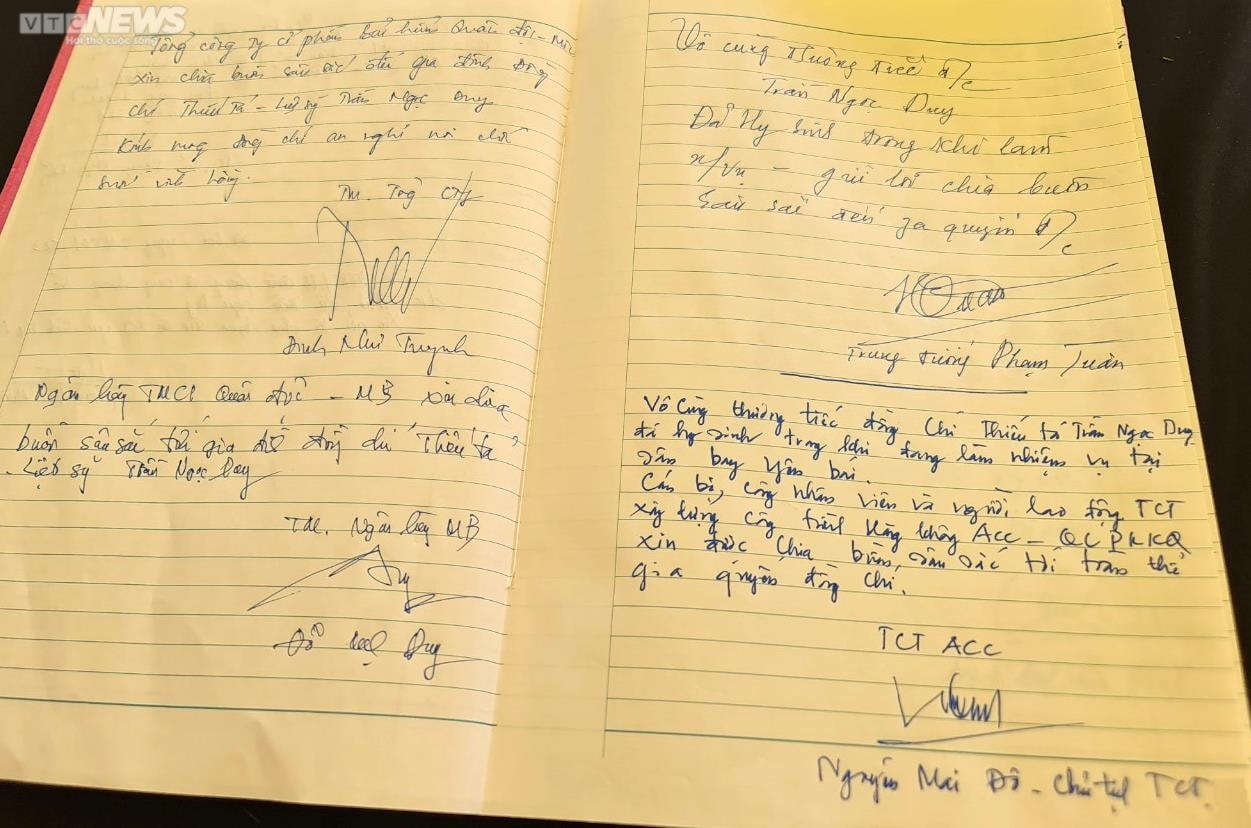 VTC NEWS
Hơi thở cuộc sống
Tổng công ty cổ phần Bảo hiểm Quân đội - MIC
xin chia buồn sâu sắc đến gia đình Đồng
chí Thiếu tá - Liệt sỹ Trần Ngọc Duy
Kính mong đồng chí an nghỉ nơi chốn
vĩnh hằng.
TM. Tổng CTy
Đinh Như Tuynh
Ngân hàng TMCP Quân đội - MB xin chia
buồn sâu sắc tới gia đồng chí Thiếu tá
Liệt sỹ Trần Ngọc Duy
TM. Ngân hàng MB
Duy
Vô cùng thương tiếc đ/c
Trần Ngọc Duy
Đã Hy sinh trong khi làm
n/vụ - gửi lời chia buồn
Sâu sắc đến gia quyến đ/c
Trung tướng Phạm Tuân
Vô cùng thương tiếc đồng chí Thiếu tá Trần Ngọc Duy
đã hy sinh trong khi đang làm nhiệm vụ tại
sân bay Yên bái.
Cán bộ, công nhân viên và người lao động TCT
xây dựng công trình hàng không ACC - QC PKKQ
xin được chia buồn, sâu sắc tới toàn thể
gia quyến đồng chí.
TCT ACC
Nguyễn Mai Đô - Chủ tịch TCT.